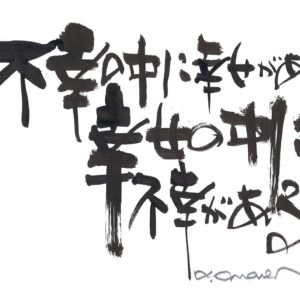 不幸の中に幸せがあ
幸せの中に
不幸がある